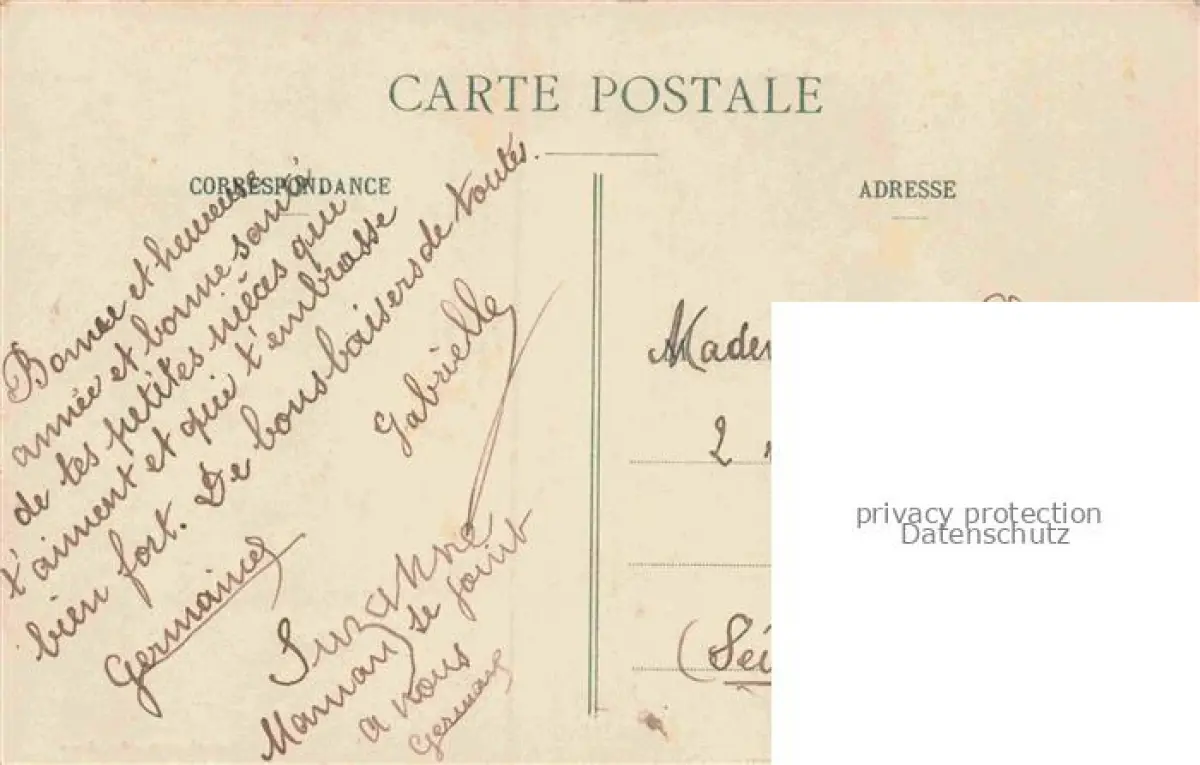 CARTE POSTALE
CORRESPONDANCE
ADRESSE
Bonne et heureuse
année et bonne santé
de tes petites nièces que
t'aiment et qui t'embrasse
bien fort. De bons baisers de toutes.
Gabrielle
Germaine
Suzanne
Maman se joint
a nous
Germaine
Made
2
(Sei
privacy protection
Datenschutz